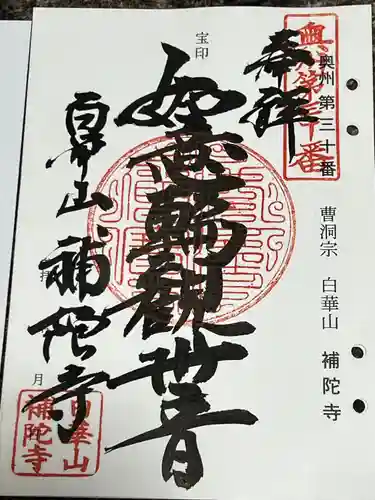 奥州第三十番
奥州 第三十番
曹洞宗 白華山 補陀寺
奉拝
宝印
如意輪観世音
白華山 補陀寺
月
白華山
補陀寺